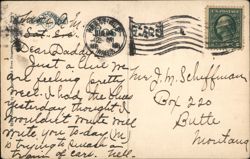 Sat. 8 a.
Dear Daddy
Just a line we
are feeling pretty
well. I had the blues
yesterday thought I
wouldn't write well
write you today. M
is trying to smash a
train of cars. Nell.
Mr J. M. Schuffman
Box 220
Butte
Montana